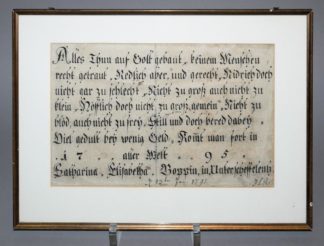 Alles Thun auf Gott gebaut, keinem Menschen
recht getraut, Redlich aber, und gerecht, Nidrich doch
nicht gar zu schlecht, Nicht zu groß auch nicht zu
klein, Höfflich doch nicht zu groß, gemein, Nicht zu
blöd, auch nicht zu frey, Still und doch bered dabey,
Viel gedult bey wenig Geld, Komt man fort in
17 aller Welt. 95.
Catharina, Elisabetha, in Unterscheffelentz